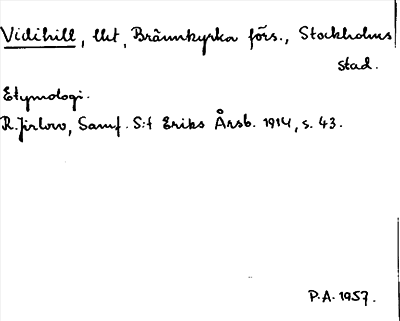 Vidihill, lht, Brännkyrka förs., Stockholms
stad.
Etymologi.
R. Jirlow, Samf. S:t Eriks Årsb. 1914, s. 43.
P.A. 1957.